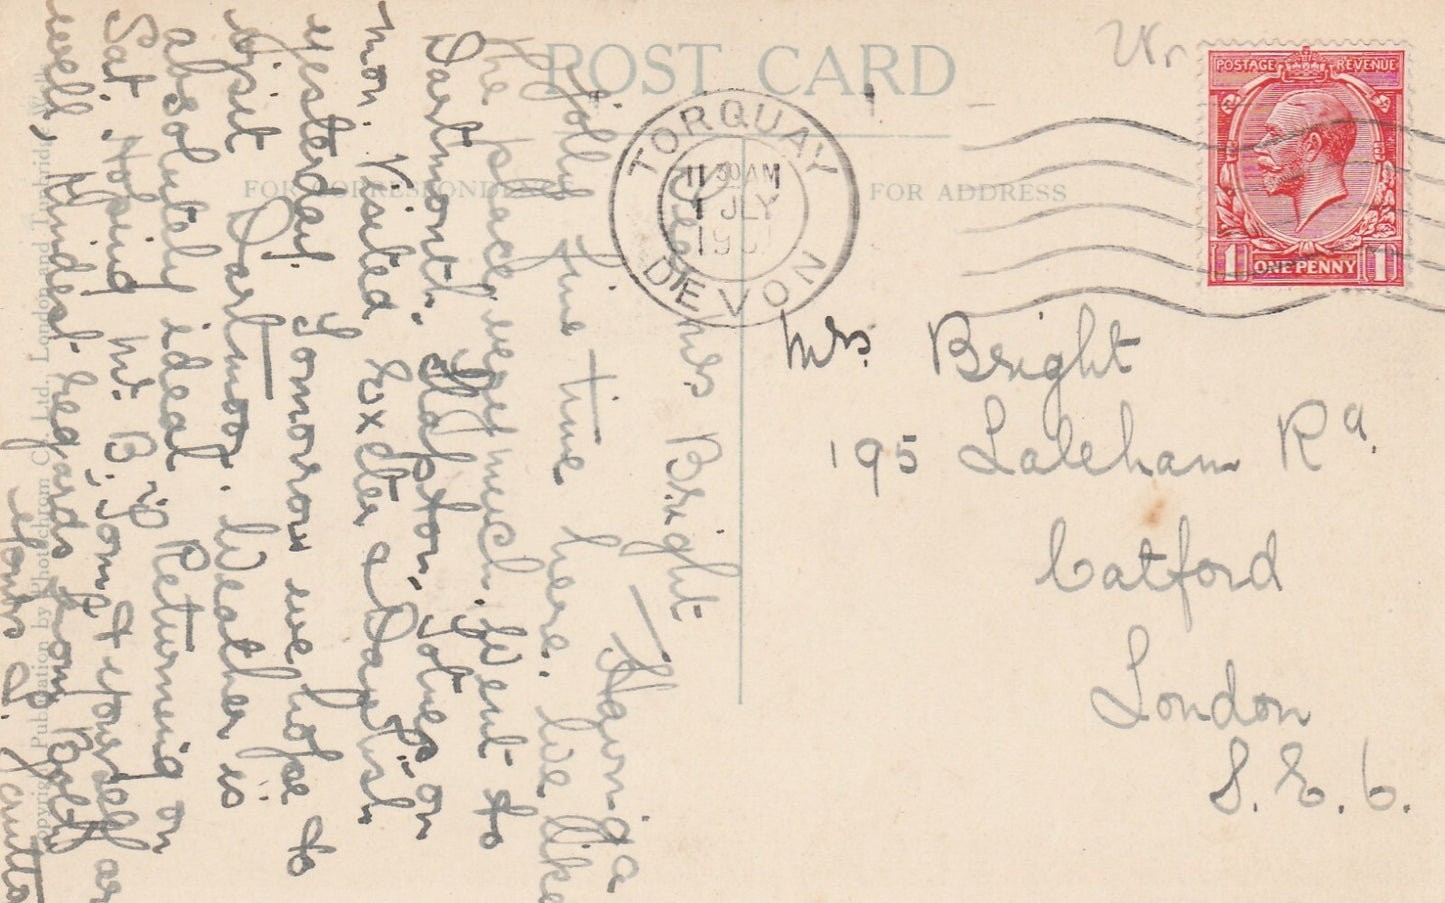 POST CARD
FOR CORRESPONDENCE
FOR ADDRESS
TORQUAY
11 30 AM
1 JLY
DEVON
POSTAGE REVENUE
1 ONE PENNY 1
Mrs. Bright
195 Laleham Rd.
Catford
London
S.E.6.
Dear Mrs Bright
Having a
jolly fine time here. We like
the place very much. Went to
Dartmouth, Totnes on
Mon. Visited Exeter & Dawlish
yesterday. Tomorow we hope to
visit Dartmoor. Weather is
absolutely ideal. Returning on
Sat. Hoping Mr. B, Tom & yourself are
well, Kindest regards from Both
Yours
Copyright Publication by Photochrom Co. Ltd., London and Tunbridge Wells